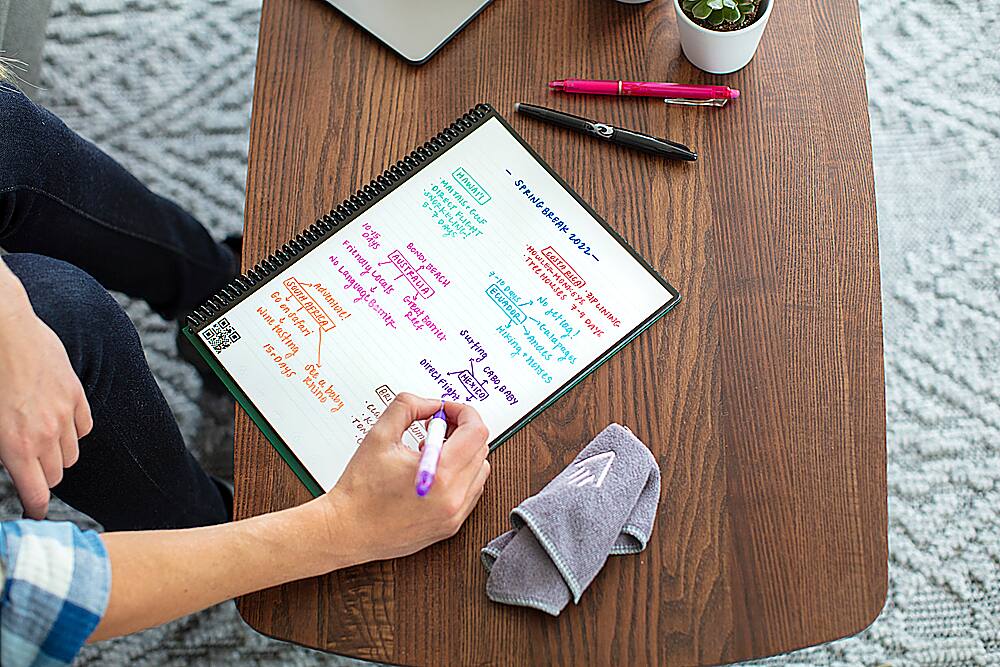 - SPRING BREAK 2022 -
HAWAI'I
· MAITAIS + GOLF
· DIRECT FLIGHT
· SNORKELING!
5-7 DAYS
COSTA RICA
· HOWLER MONKEYS
· TREE HOUSES
· ZIPLINING
7-9 DAYS
10-15
DAYS
BONDI BEACH
AUSTRALIA
Friendly Locals
No Language Barrier
Great Barrier
Reef
7-10 DAYS
No jetlag!
ECUADOR
Galapagos
ANDES
Hiking + Horses
SOUTH AFRICA
ADVENTURE!
Go on Safari
Wine tasting
15+ DAYS
See a baby
rhino
Surfing
CABO, BABY
MEXICO
Direct flight